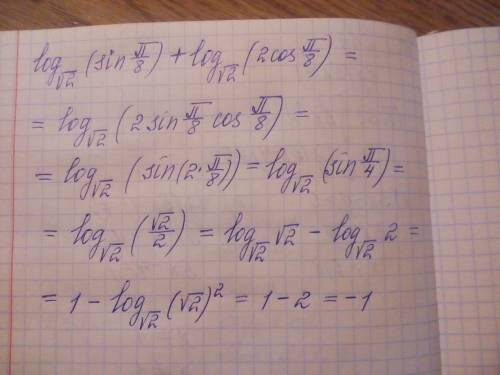 log_√2 (sin π/8) + log_√2 (2cos π/8) =
= log_√2 (2sin π/8 cos π/8) =
= log_√2 (sin(2·π/8)) = log_√2 (sin π/4) =
= log_√2 (√2/2) = log_√2 √2 − log_√2 2 =
= 1 − log_√2 (√2)² = 1 − 2 = −1